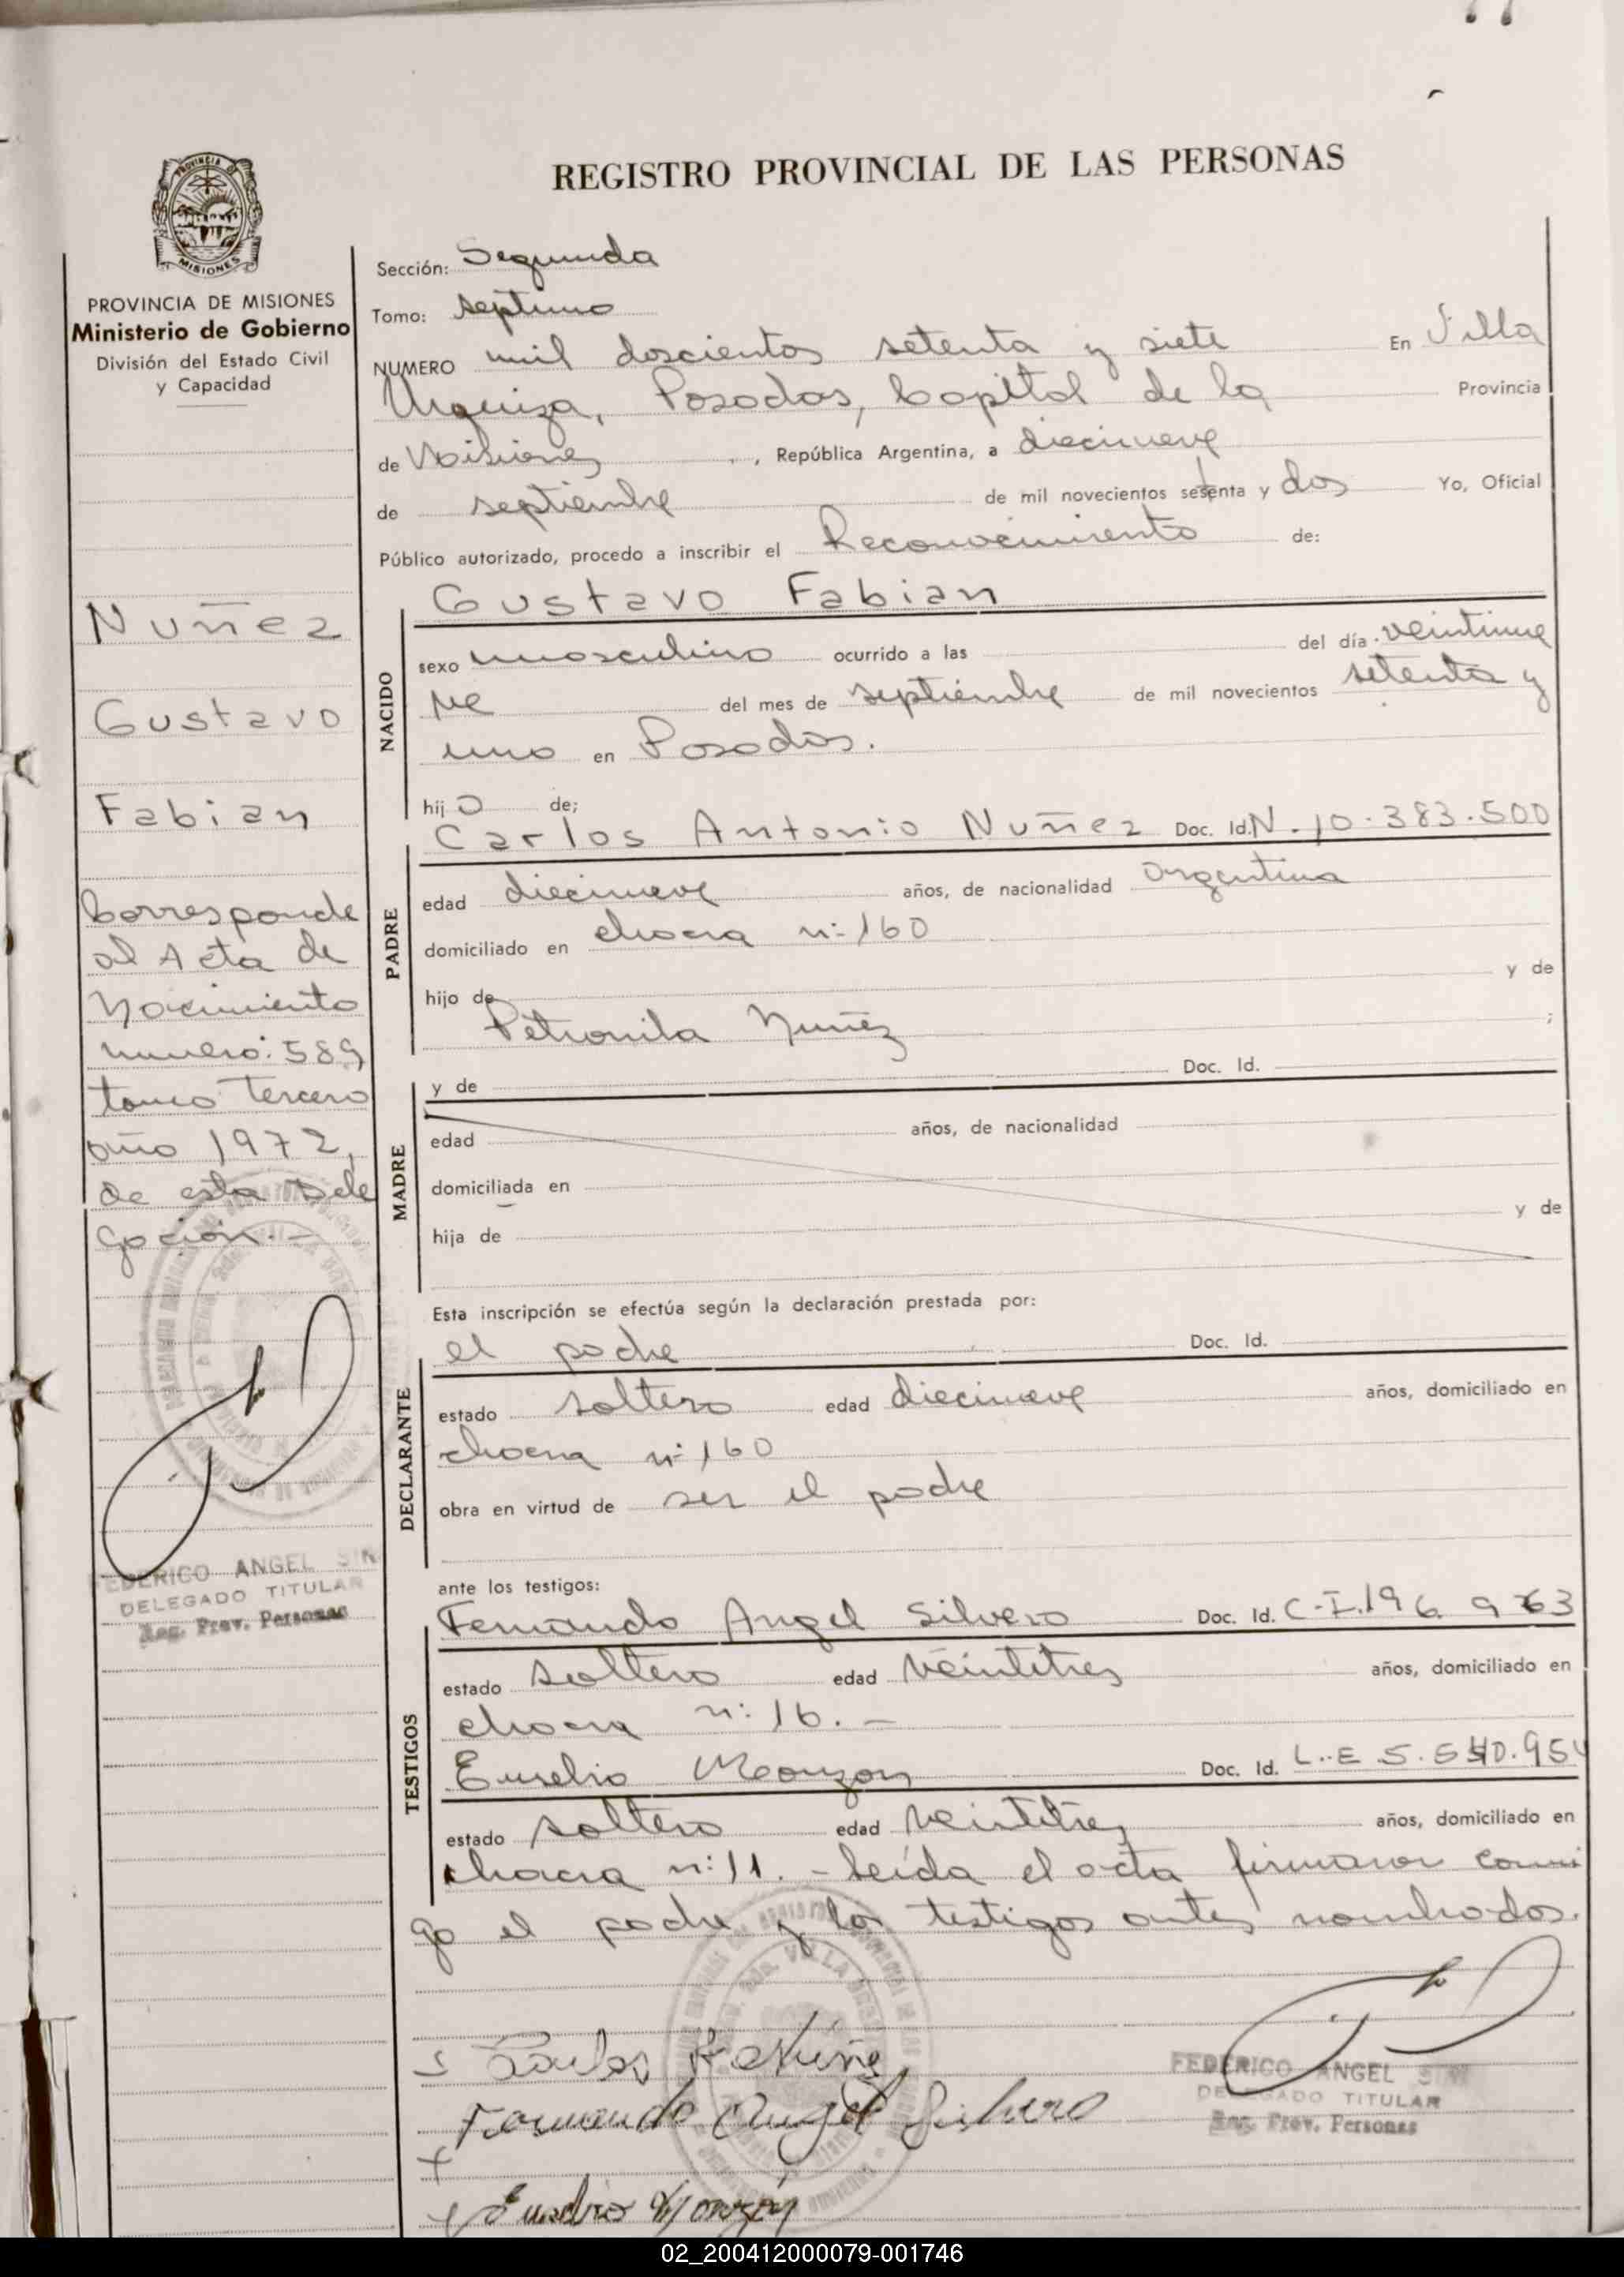 REGISTRO PROVINCIAL DE LAS PERSONAS
PROVINCIA
MISIONES
PROVINCIA DE MISIONES
Ministerio de Gobierno
División del Estado Civil
y Capacidad
Nuñez
Gustavo
Fabian
Corresponde
al Acta de
Nacimiento
numero: 589
tomo Tercero
año 1972,
de esta Dele
gación.-
FEDERICO ANGEL
DELEGADO TITULAR
Reg. Prov. Personas
Sección: Segunda
Tomo: septimo
NUMERO mil doscientos setenta y siete En Villa
Urquiza, Posadas, Capital de la Provincia
de Misiones, República Argentina, a diecinueve
de septiembre de mil novecientos setenta y dos Yo, Oficial
Público autorizado, procedo a inscribir el Reconocimiento de:
Gustavo Fabian
NACIDO
sexo masculino ocurrido a las del día veintinue
ve del mes de septiembre de mil novecientos setenta y
uno en Posadas.
hijo de;
Carlos Antonio Nuñez Doc. Id. N. 10.383.500
PADRE
edad diecinueve años, de nacionalidad Argentina
domiciliado en chacra n: 160
hijo de y de
Petronila Nuñez ;
MADRE
y de Doc. Id.
edad años, de nacionalidad
domiciliada en
hija de y de
Esta inscripción se efectúa según la declaración prestada por:
el padre Doc. Id.
DECLARANTE
estado soltero edad diecinueve años, domiciliado en
chacra n: 160
obra en virtud de ser el padre
ante los testigos:
Fernando Angel Silvero Doc. Id. C.I. 196 963
TESTIGOS
estado soltero edad veintitres años, domiciliado en
chacra n: 16. -
Eusebio Monzon Doc. Id. L.E 5.
estado soltero edad veintitres años, domiciliado en
chacra n: 11. - Leída el acta firmaron conmi
go el padre y los testigos antes nombrados.
Carlos A Nuñe
Fernando Angel Silvero
Eusebio Monzón
FEDERICO ANGEL
DELEGADO TITULAR
Reg. Prov. Personas
02_200412000079-001746